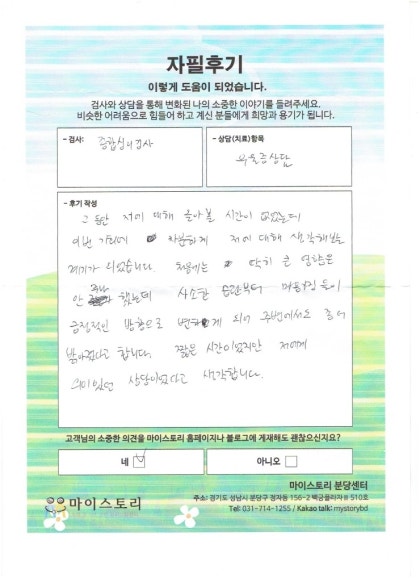 자필후기
이렇게 도움이 되었습니다.
검사와 상담을 통해 변화된 나의 소중한 이야기를 들려주세요.
비슷한 어려움으로 힘들어 하고 계신 분들에게 희망과 용기가 됩니다.
- 검사:
종합심리검사
- 상담(치료)항목
우울증상담
- 후기 작성
그 동안 저에 대해 돌아볼 시간이 없었는데
이번 기회에 차분하게 저에 대해 생각해볼
계기가 되었습니다. 처음에는 딱히 큰 영향은
안 주나 했는데 사소한 습관부터 마음가짐 등이
긍정적인 방향으로 변하게 되어 주변에서도 좋이
밝아졌다고 합니다. 짧은 시간이었지만 저에게
의미있던 상담이었다고 생각합니다.
고객님의 소중한 의견을 마이스토리 홈페이지나 블로그에 게재해도 괜찮으신지요?
네
아니오
마이스토리 분당센터
마이스토리
주소: 경기도 성남시 분당구 정자동 156-2 백궁플라자Ⅱ 510호
Tel: 031-714-1255 / Kakao talk: mystorybd